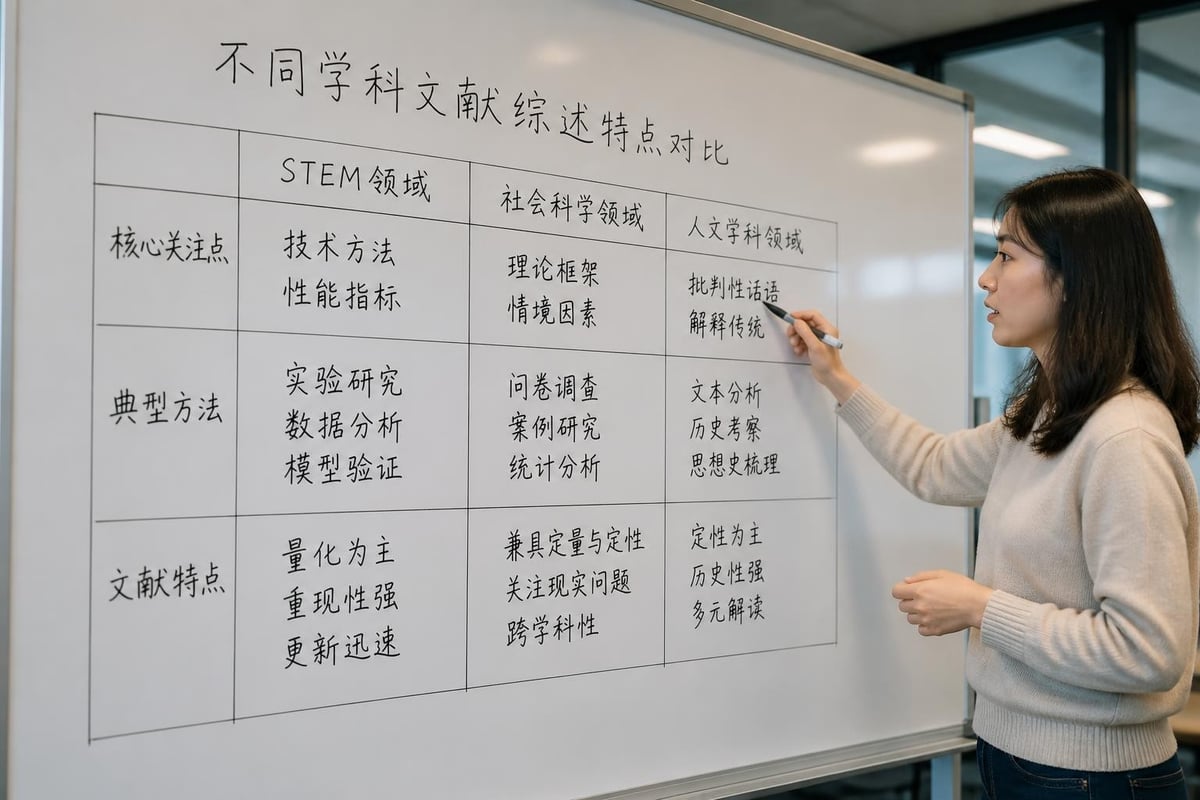 不同学科文献综述特点对比
STEM 领域
社会科学领域
人文学科领域
核心关注点
技术方法
性能指标
理论框架
情境因素
批判性话语
解释传统
典型方法
实验研究
数据分析
模型验证
问卷调查
案例研究
统计分析
文本分析
历史考察
思想史梳理
文献特点
量化为主
重现性强
更新迅速
兼具定量与定性
关注现实问题
跨学科性
定性为主
历史性强
多元解读